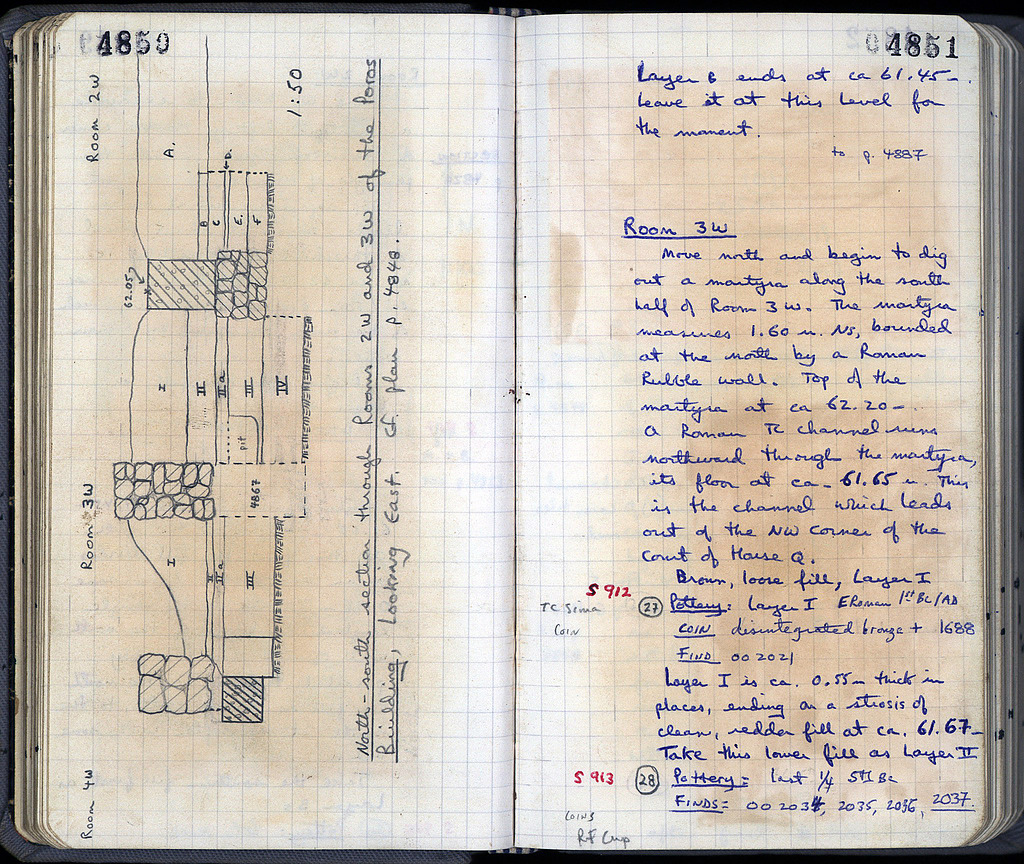 4850
Room 2W
Room 3W
Room 4W
1:50
62.05
A.
B
C
D.
E.
F
I
II
IIa
III
IV
pit
4867
I
II
IIa
III
North-south section through Rooms 2W and 3W of the Poros
Building, looking East. cf. plan p. 4848.
4851
Layer B ends at ca 61.45-
Leave it at this level for
the moment.
to p. 4887
Room 3W
Move north and begin to dig
out a martyra along the south
half of Room 3W. The martyra
measures 1.60 m. NS, bounded
at the north by a Roman
Rubble wall. Top of the
martyra at ca 62.20-
A Roman TC channel runs
northward through the martyra,
its floor at ca- 61.65 m. This
is the channel which leads
out of the NW corner of the
Court of House Q.
Brown, loose fill, Layer I
S 912
TC Sima
Coin
27 Pottery: Layer I ERoman 1st BC/AD
COIN disintegrated bronze + 1688
FIND 002021
Layer I is ca. 0.55m thick in
places, ending on a strosis of
clean, redder fill at ca. 61.67-
Take this lower fill as Layer II
S 913
28 Pottery: last 1/4 5th BC
FINDS: 002034, 2035, 2036, 2037.
COINS
RF Cup